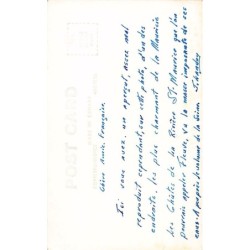 Chère Amie Française,
Ici vous avez un aperçu, assez mal
reproduit cependant, sur cette photo, d'un des
endroits les plus charmant de la Mauricie
des Chûtes de la Rivière St-Maurice que l'on
pourrait appeler fleuve, vu la masse imposante de ses
eaux. A propos le volume à la
POST CARD